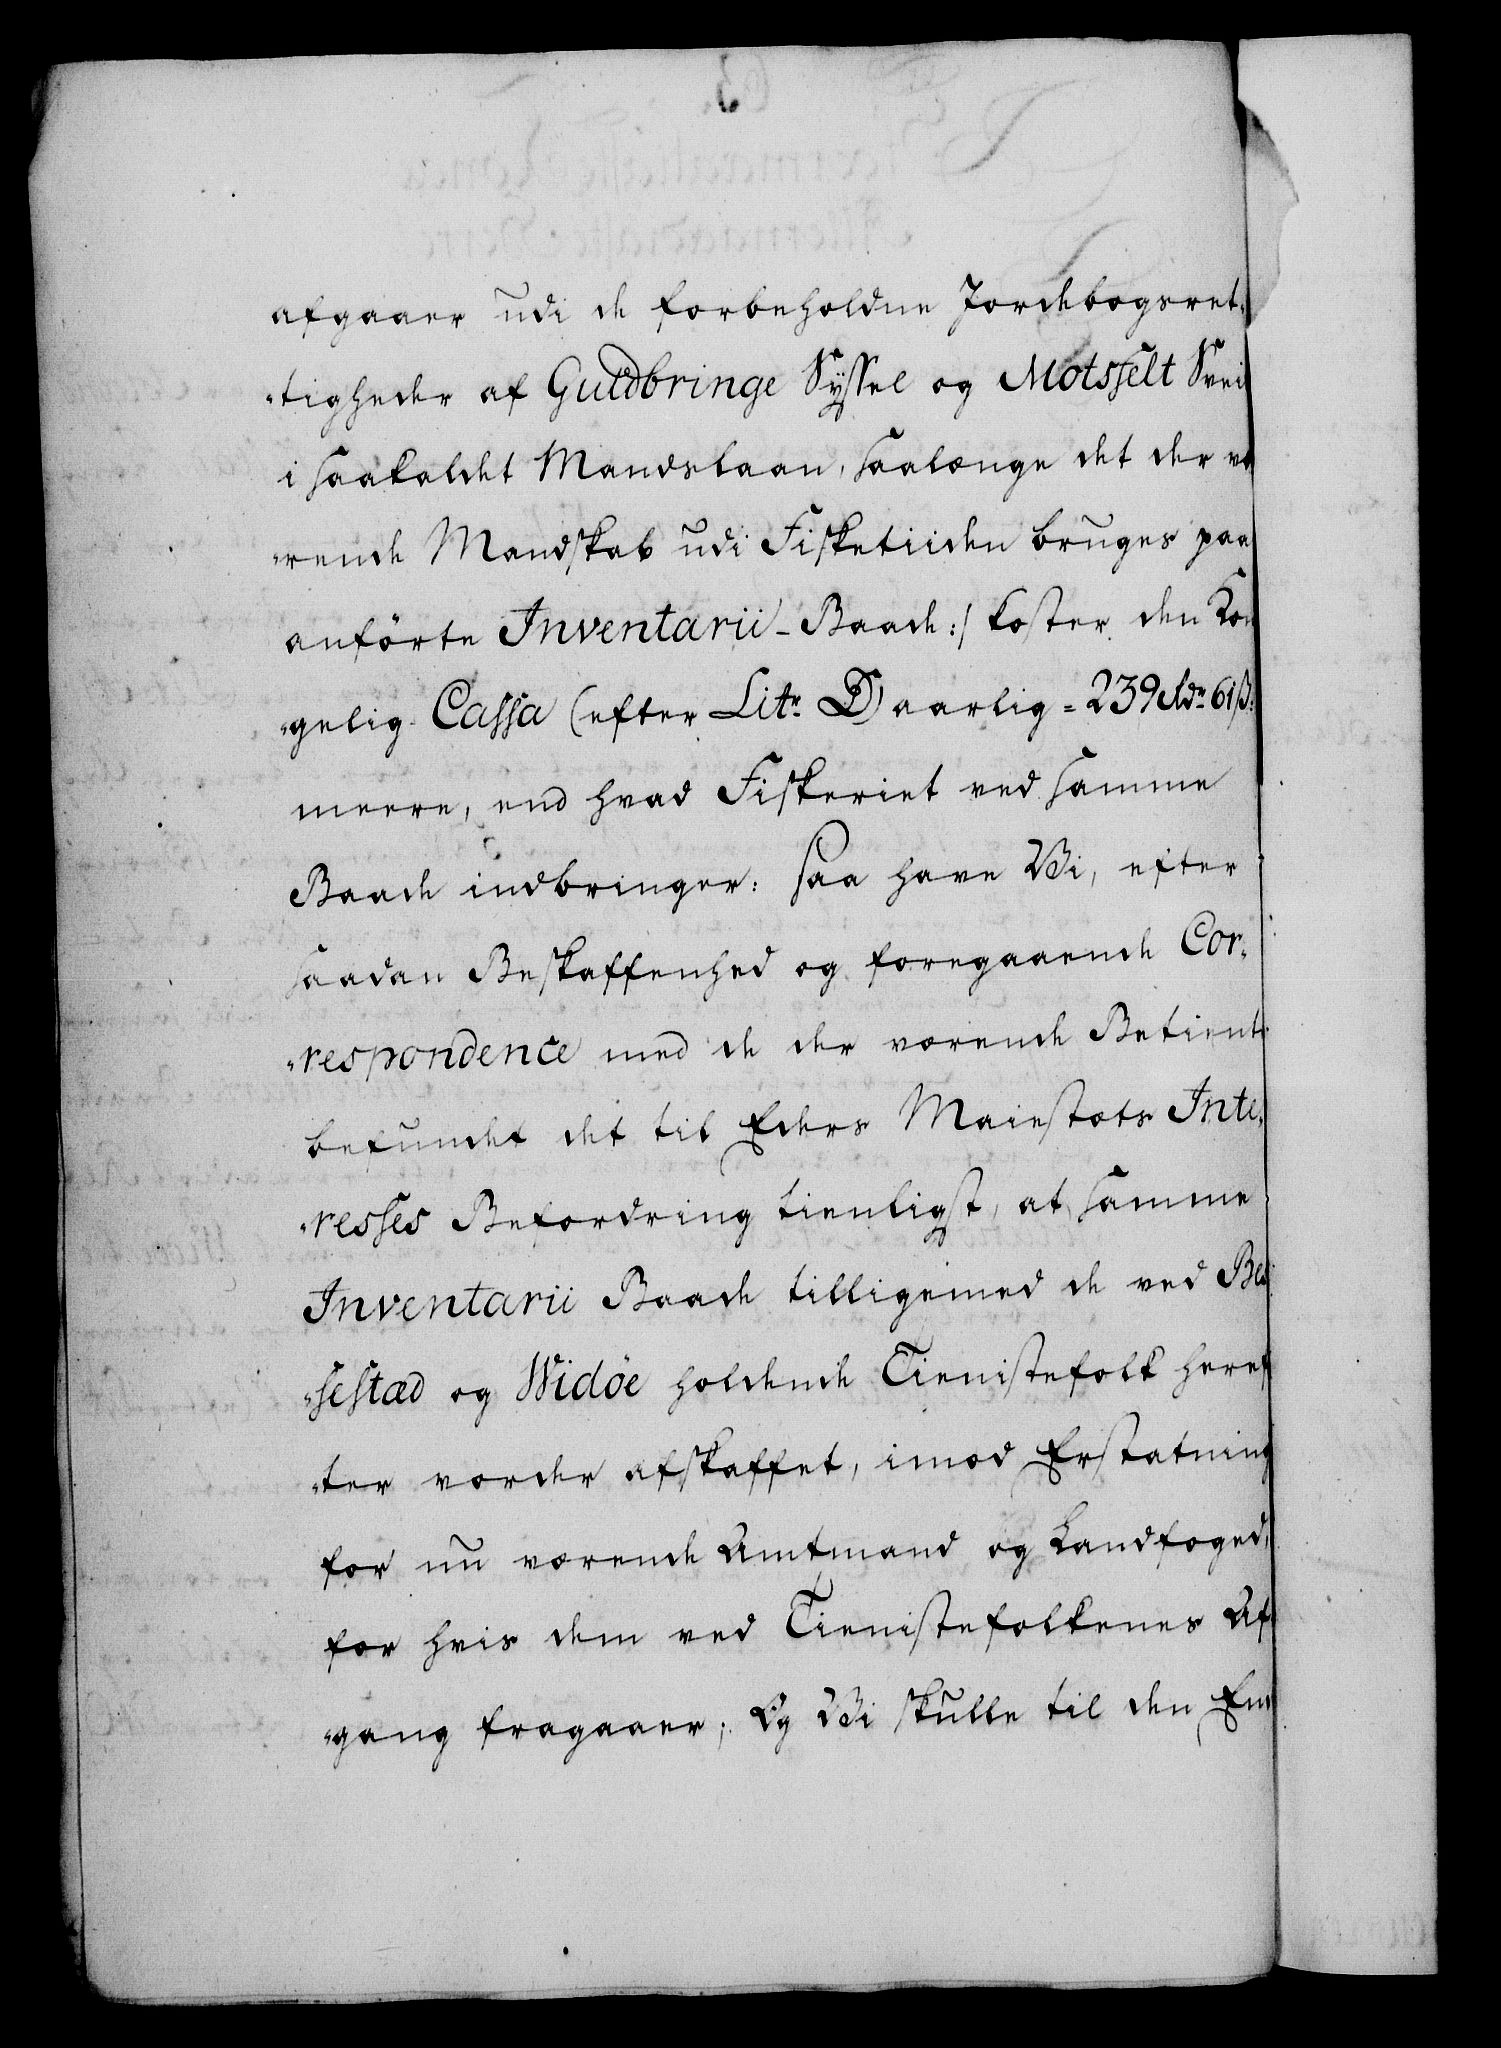 afgaaer udi de forbeholdne Jordebogsret-
tigheder af Guldbringe Syssel og Motsfelt Svei
i saakaldet Mandslaan, saalænge det der væ
rende Mandskab udi Fisketiiden bruges paa
anförte Inventarii-Baade:/ koster den Kon
gelig Cassa (efter Litr. D) aarlig = 239 Rdr 61 ß:
meere, end hvad Fiskeriet ved samme
Baade indbringer: saa have Vi, efter
saadan Beskaffenhed og foregaaende Cor-
respondence med de der værende Betiente
befundet det til Eders Maiestæts Inte-
resses Befordring tienligst, at samme
Inventarii Baade tilligemed de ved Bes
sestæd og Widöe holdende Tienistefolk heref
ter vorder afskaffet, imod Erstatning
for nu værende Amtmand og Landfoged,
for hvis dem ved Tienistefolkenes Af
gang fragaaer; Og Vi skulle til den Em